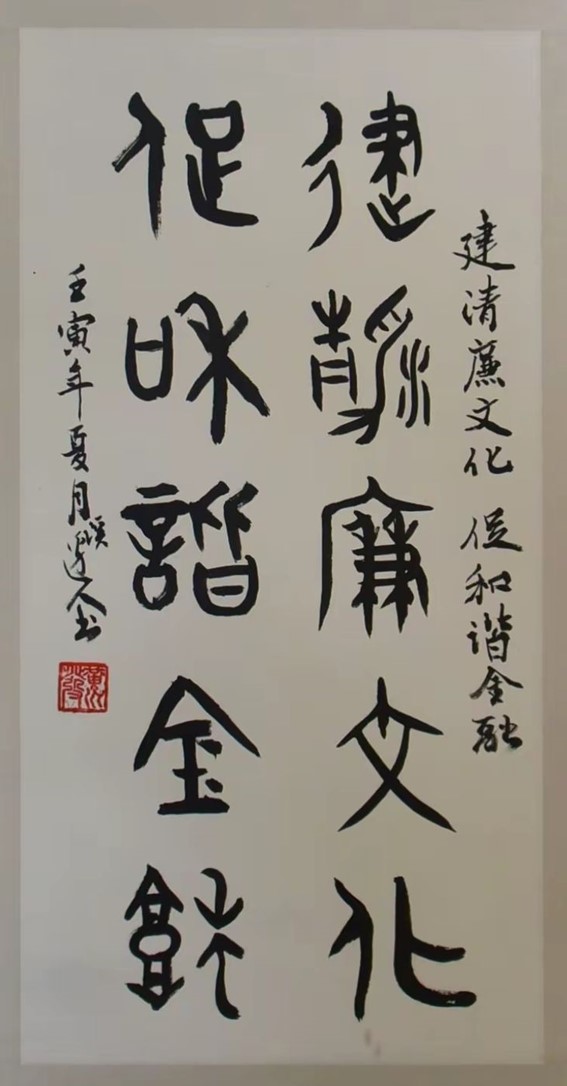 建清廉文化 促和谐金融
建清廉文化
促和諧金融
壬寅年夏月